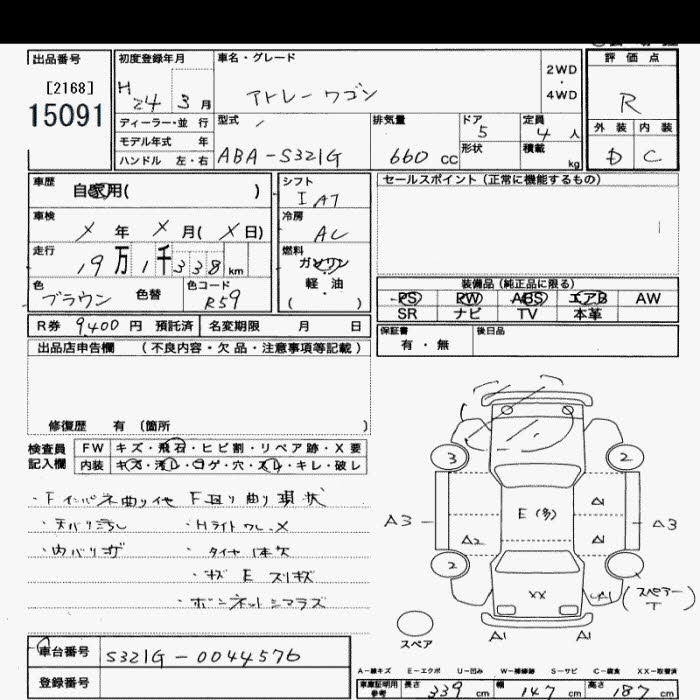 出品番号
[2168]
15091
初度登録年月
H 24 3 月
ディーラー・並 行
モデル年式 年
ハンドル 左・右
車名・グレード
アトレーワゴン
2WD
・
4WD
型式
ABA-S321G
排気量
660 CC
ドア
5
定員
4 人
形状
積載
kg
評 価 点
R
外 装 内 装
D C
車歴
自家用( )
車検
X 年 X 月(X 日)
走行
19万1千338 km
色
ブラウン
色替
色コード
R59
シフト
I AT
冷房
AC
燃料
ガソリン
軽・油
( )
セールスポイント (正常に機能するもの)
装備品 (純正品に限る)
PS PW ABS エアB AW
SR ナビ TV 本革
R券 9400 円 預託済
名変期限 月 日
保証書
有・無
後日品
出品店申告欄 (不良内容・欠品・注意事項等記載)
修復歴 有 (箇所 )
検査員
記入欄
FW キズ・飛石・ヒビ割・リペア跡・X要
内装 キズ・汚レ・コゲ・穴・スレ・キレ・破レ
・Fインパネ曲り他 F廻り曲り現状
・天バリ汚し
・HライトワレX
・内バリキズ
・タイヤ1本欠
・キズ E スリキズ
・ボンネットシマラズ
3
2
A3
E(多)
A1
A3
A2
A1
2
XX
A1
(スペアー
T)
スペア
A1
A1
車台番号 S321G-0044576
登録番号
A-線キズ E-エクボ U-凹み W-補修跡 S-サビ C-腐食 XX-取替済
車庫証明用
参考
長さ 339 cm
幅 147 cm
高さ 187 cm